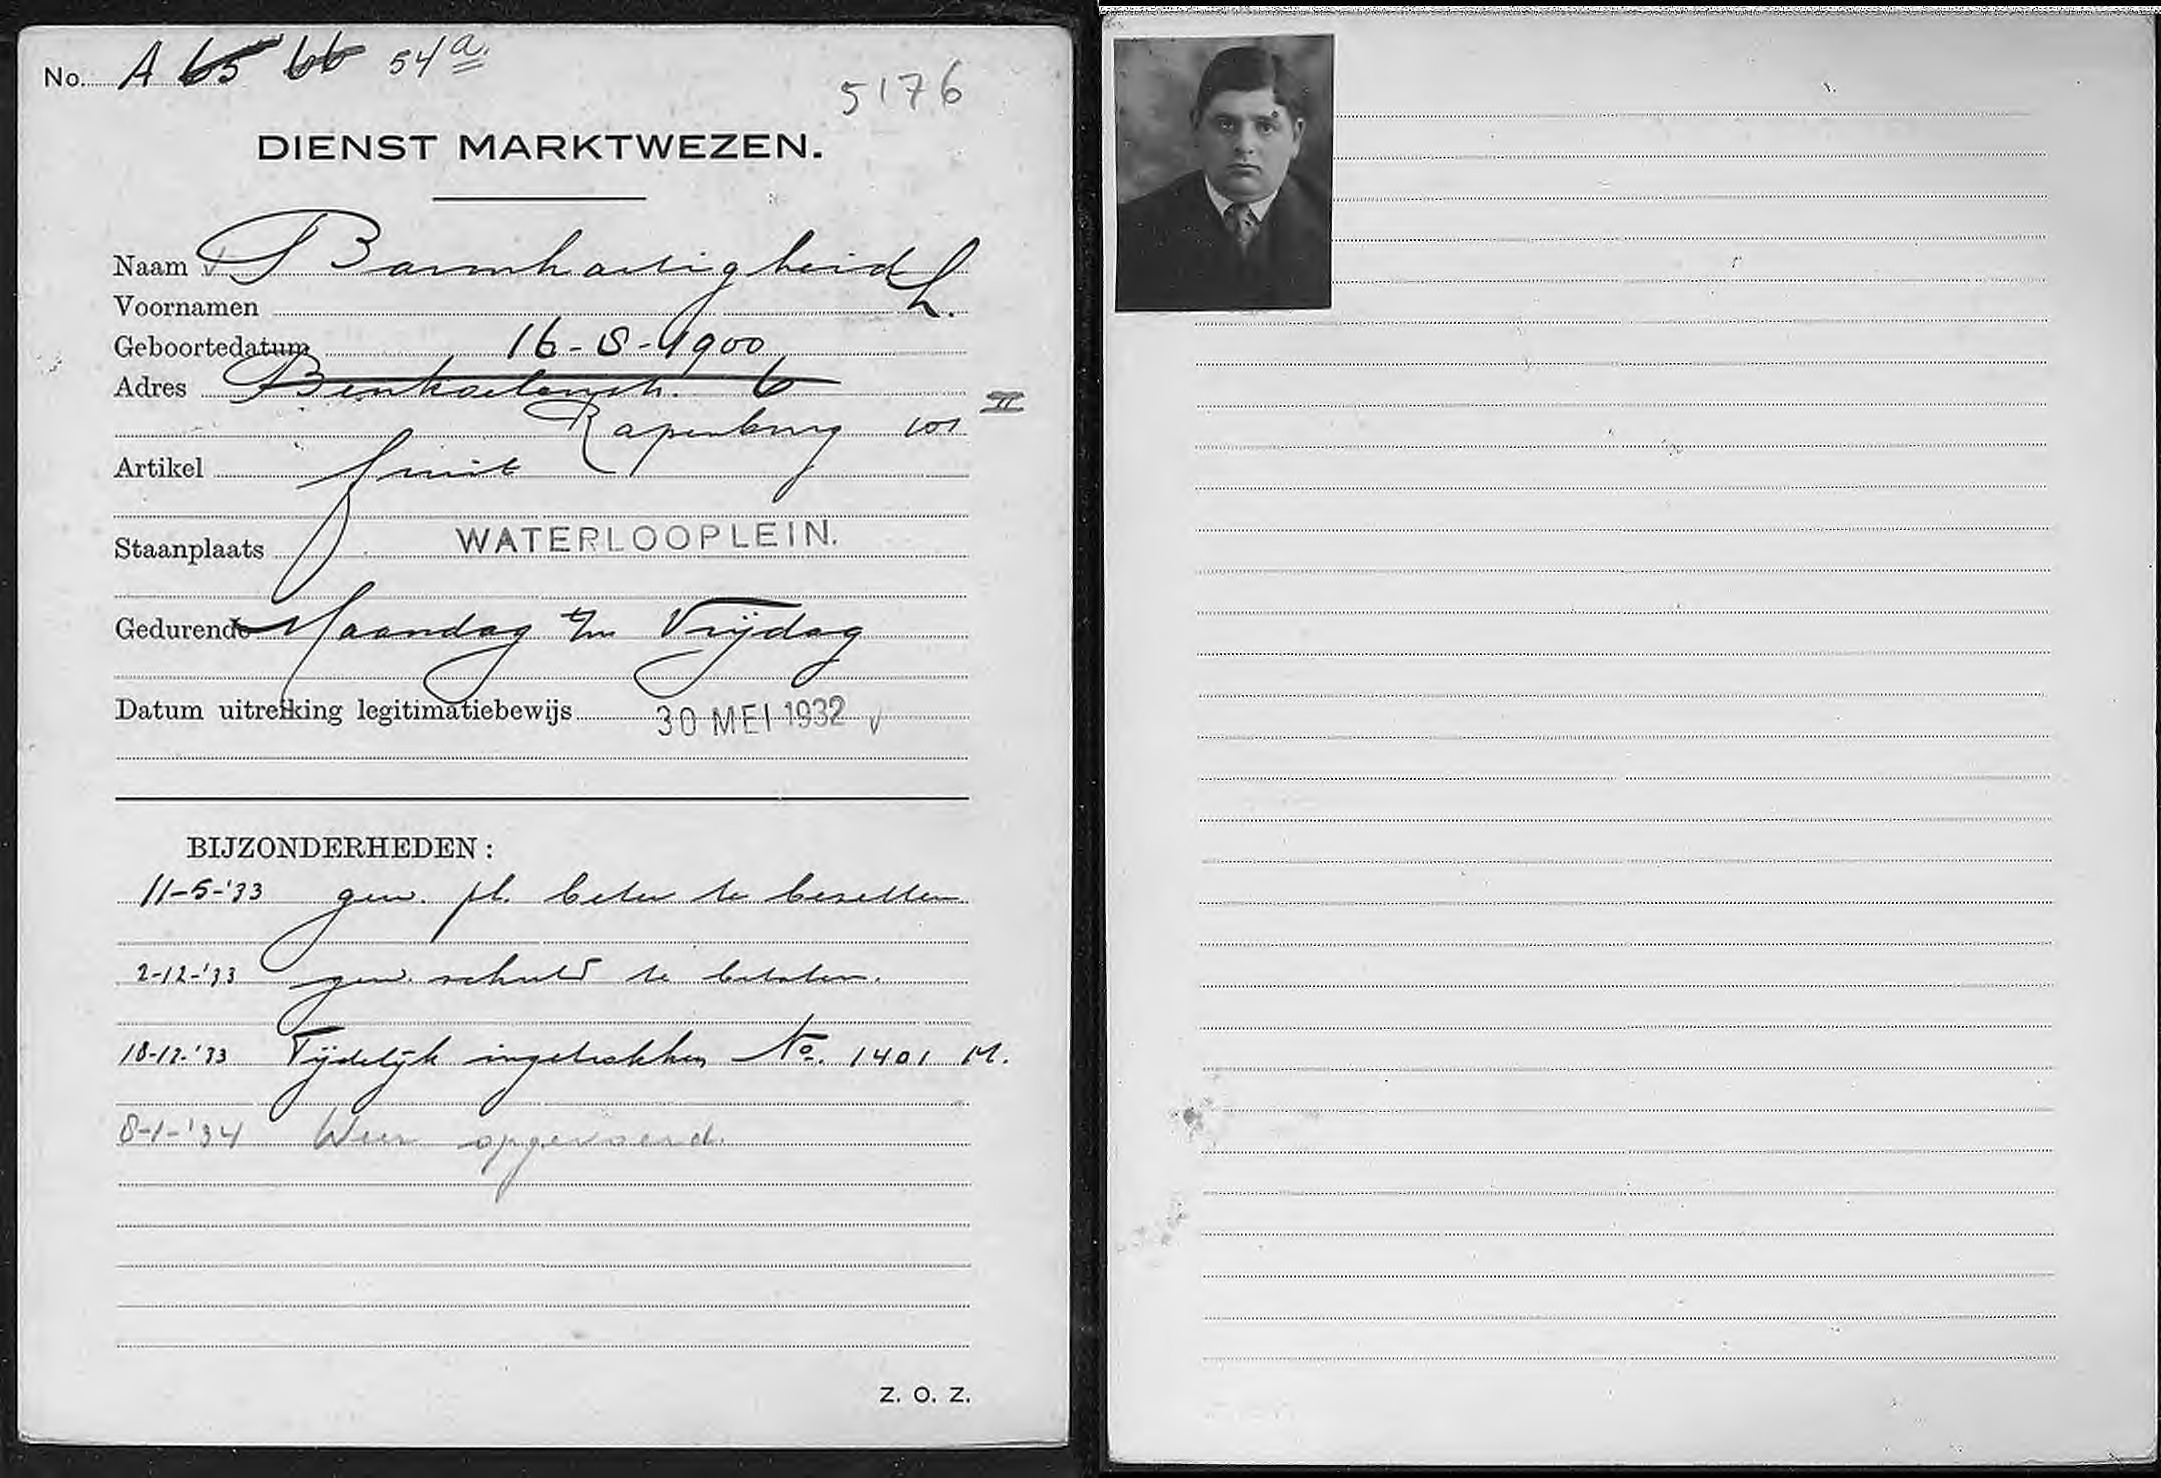 No. A 65 66 54a.
5176
DIENST MARKTWEZEN.
Naam Barmhartigheid
Voornamen L.
Geboortedatum 16-8-1900
Adres Benkoelenstr. 6
Rapenburg 101 II
Artikel fruit
Staanplaats WATERLOOPLEIN.
Gedurende Maandag t/m Vrijdag
Datum uitreiking legitimatiebewijs 30 MEI 1932
BIJZONDERHEDEN:
11-5-'33 gew. pl. beter te bezetten.
2-12-'33 gew. schuld te betalen.
18-12-'33 Tijdelijk ingetrokken No. 1401 M.
8-1-'34 Weer opgevoerd.
Z. O. Z.